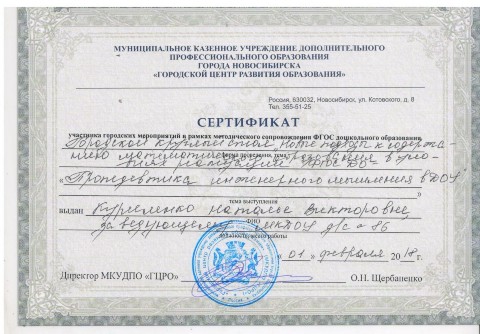 МУНИЦИПАЛЬНОЕ КАЗЕННОЕ УЧРЕЖДЕНИЕ ДОПОЛНИТЕЛЬНОГО
ПРОФЕССИОНАЛЬНОГО ОБРАЗОВАНИЯ
ГОРОДА НОВОСИБИРСКА
«ГОРОДСКОЙ ЦЕНТР РАЗВИТИЯ ОБРАЗОВАНИЯ»
Россия, 630032, Новосибирск, ул. Котовского, д. 8
Тел. 355-51-25
СЕРТИФИКАТ
участника городских мероприятий в рамках методического сопровождения ФГОС дошкольного образования
Городской круглый стол, подход к содержа-
нию математического в усло-
виях реализации ФГОС ДО"
форма проведения, тема
«Пропедевтика инженерного мышления в ДОУ"
тема выступления
ВЫДАН Куриленко Наталье Викторовне
ФИО
заведующему МКДОУ д/с 86
должность, место работы
«01» февраля 2018г.
Директор МКУДПО «ГЦРО» О.Н. Щербаненко